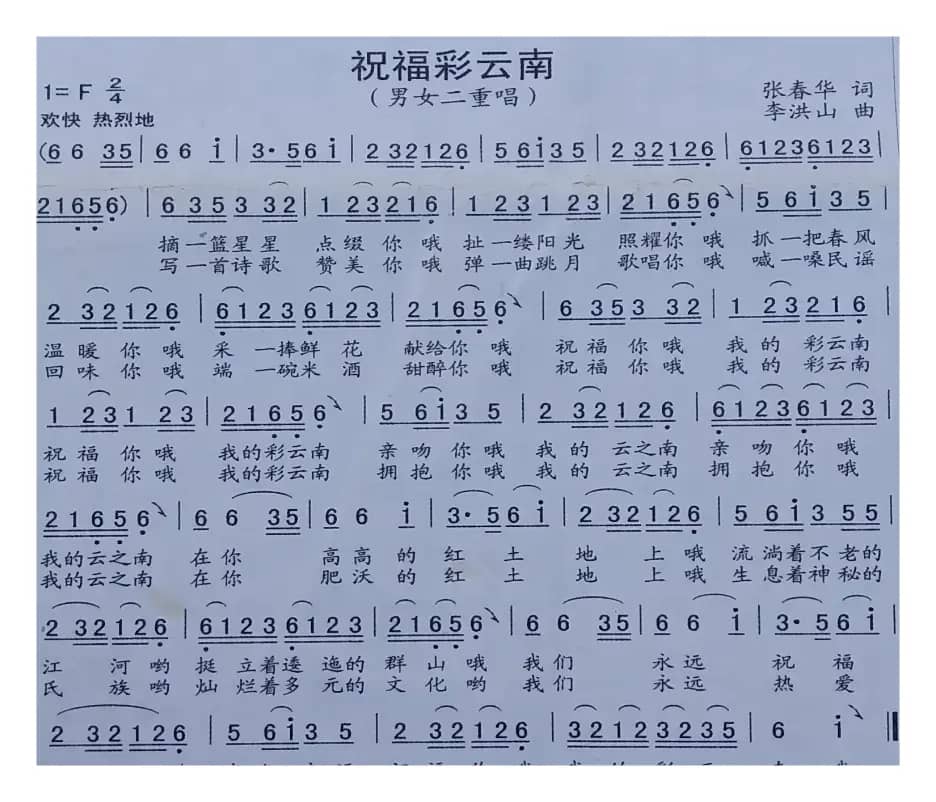 祝福彩云南
1= F 2/4
（男女二重唱）
张春华 词
李洪山 曲
欢快 热烈地
(6 6 35 | 6 6 i | 3· 56 i | 2 32126 | 56i35 | 2 32126 | 61236123 |
21656) | 6 353 32 | 1 23216 | 1 231 23 | 21656 | 5 6i3 5 |
摘一篮星星 点缀你哦 扯一缕阳光 照耀你哦 抓一把春风
写一首诗歌 赞美你哦 弹一曲跳月 歌唱你哦 喊一嗓民谣
2 32126 | 61236123 | 21656 | 6 353 32 | 1 23216 |
温暖你哦 采一捧鲜花 献给你哦 祝福你哦 我的彩云南
回味你哦 端一碗米酒 甜醉你哦 祝福你哦 我的彩云南
1 231 23 | 21656 | 5 6i35 | 2 32126 | 61236123 |
祝福你哦 我的彩云南 亲吻你哦 我的云之南 亲吻你哦
祝福你哦 我的彩云南 拥抱你哦 我的云之南 拥抱你哦
21656 | 6 6 35 | 6 6 i | 3· 56 i | 2 32126 | 5 6i3 55 |
我的云之南 在你 高高的红土地上哦 流淌着不老的
我的云之南 在你 肥沃的红土地上哦 生息着神秘的
2 32126 | 61236123 | 21656 | 6 6 35 | 6 6 i | 3· 56 i |
江河哟 挺立着逶迤的群山哦 我们 永远 祝福
氏族哟 灿烂着多元的文化哟 我们 永远 热爱
2 32126 | 5 6i3 5 | 2 32126 | 32123235 | 6 i ‖